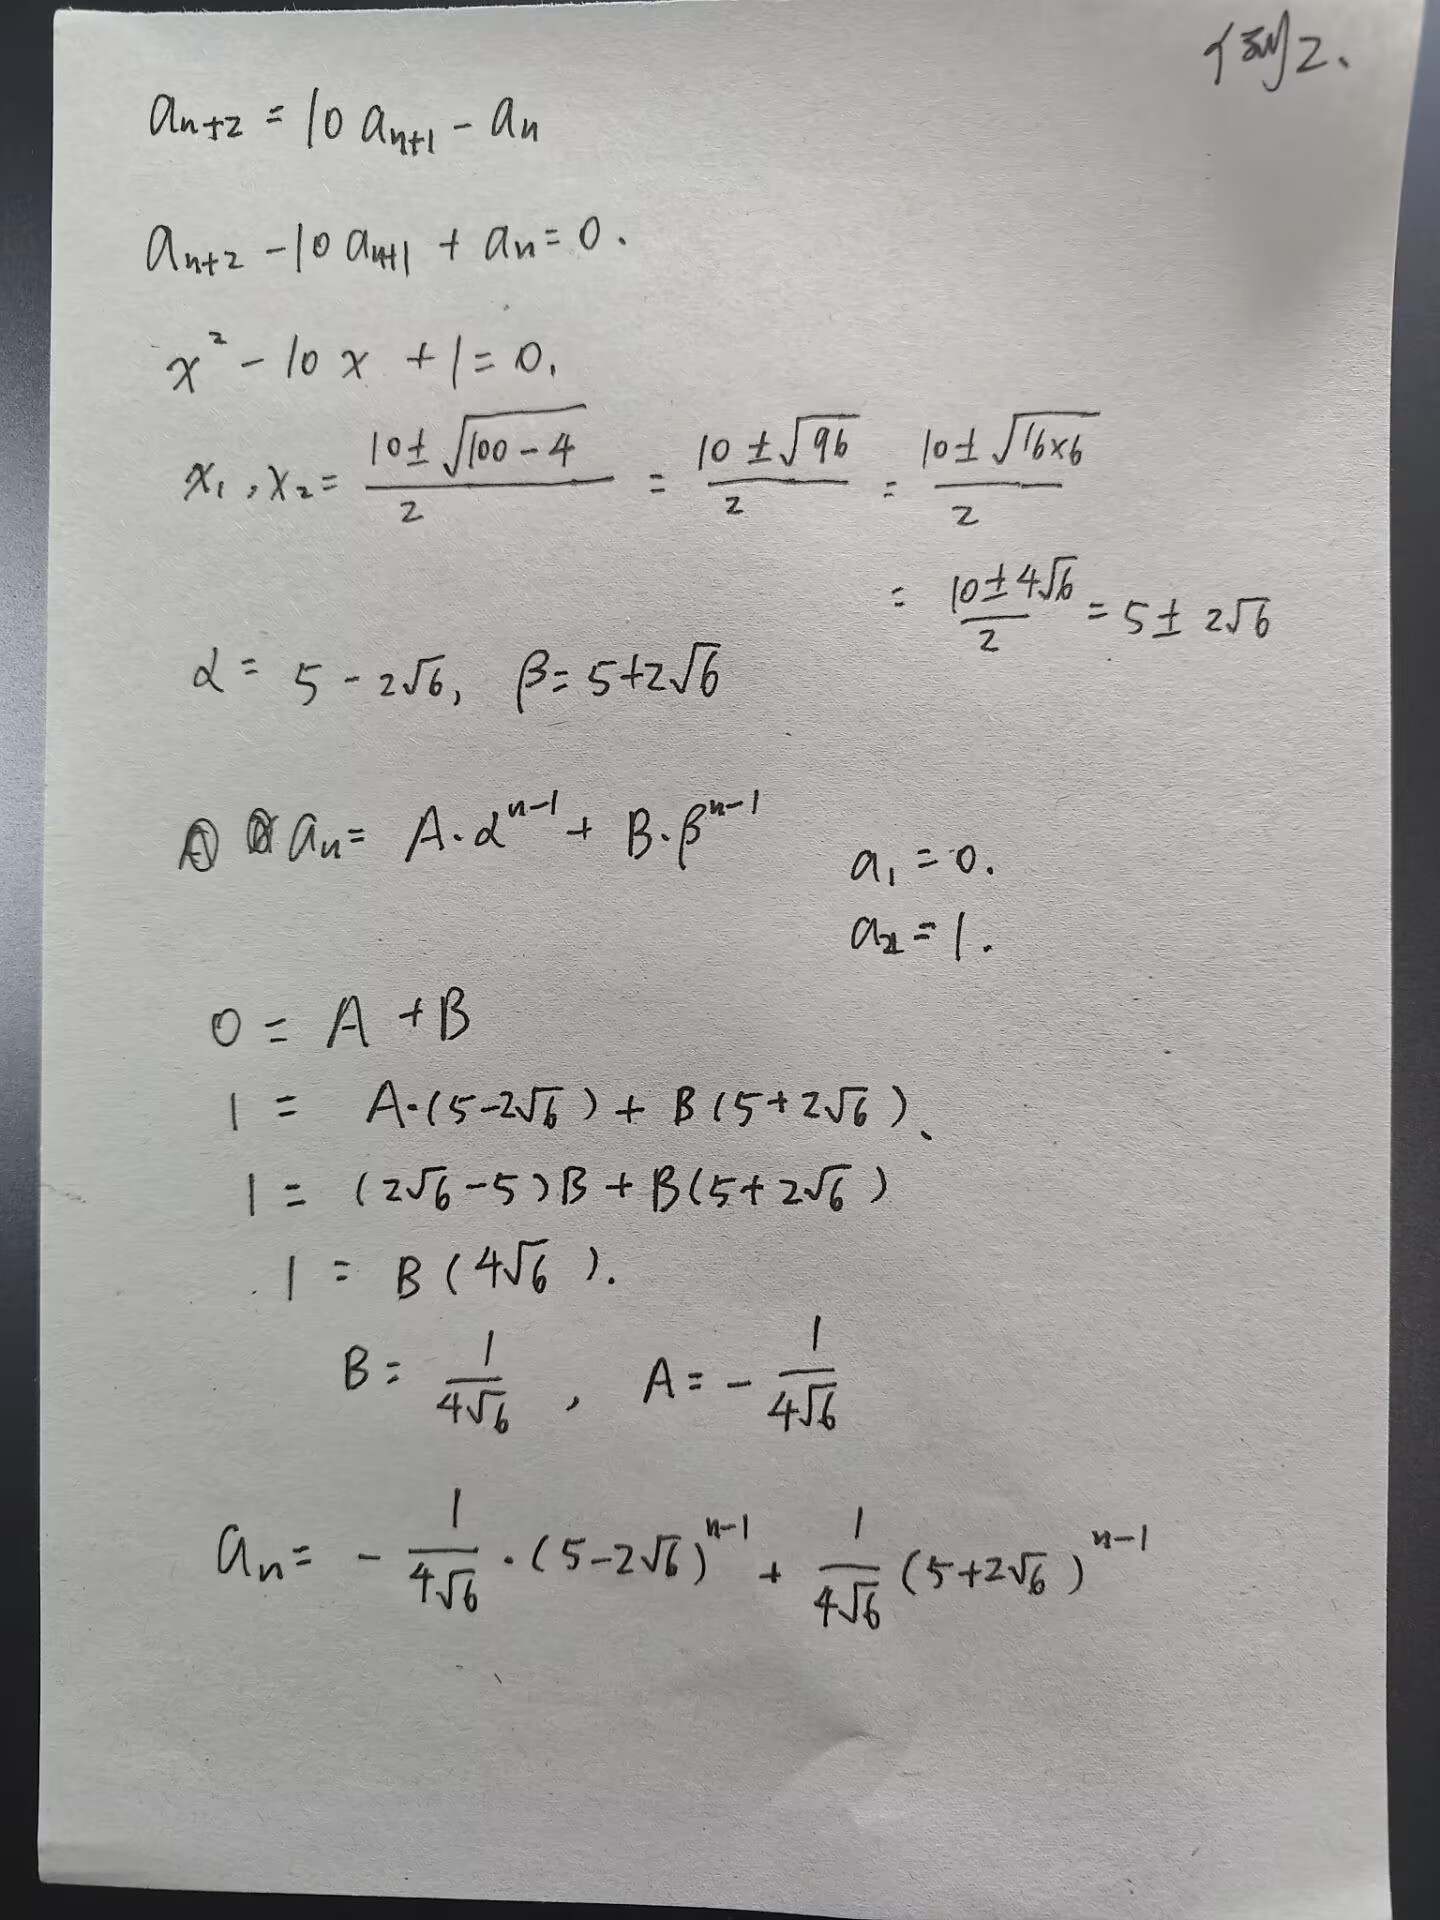 例2.
aₙ₊₂ = 10 aₙ₊₁ - aₙ
aₙ₊₂ - 10 aₙ₊₁ + aₙ = 0.
x² - 10 x + 1 = 0.
x₁, x₂ = (10 ± √(100 - 4))/2 = (10 ± √96)/2 = (10 ± √(16×6))/2
= (10 ± 4√6)/2 = 5 ± 2√6
α = 5 - 2√6, β = 5 + 2√6
aₙ = A·αⁿ⁻¹ + B·βⁿ⁻¹
a₁ = 0.
a₂ = 1.
0 = A + B
1 = A·(5-2√6) + B(5+2√6).
1 = (2√6-5)B + B(5+2√6)
1 = B(4√6).
B = 1/(4√6), A = - 1/(4√6)
aₙ = - 1/(4√6) · (5-2√6)ⁿ⁻¹ + 1/(4√6) (5+2√6)ⁿ⁻¹